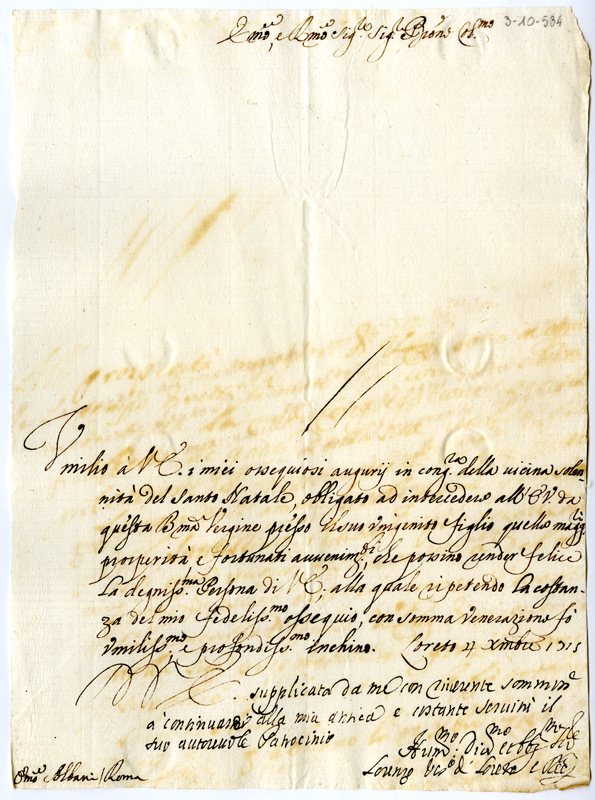 3-10-534
Em̃o, e Rm̃o Sig.re Sig.re Pron̄e Col.mo
Vmilio à VE. i miei ossequiosi augurij in cong.ra della vicina solen-
nità del santo Natale, obligato ad intercedere all' EV da
questa Bm̃a Vergine presso il suo Vnigenito figlio quelle magg.ri
prosperità, e fortunati avvenim.ti, che possino render felice
la degniss.ma Persona di VE, alla quale ripetendo la costan-
za del mio fedeliss.mo ossequio, con somma venerazione fò
vmiliss.mo, e profondiss.mo inchino. Loreto 4 Xmbre 1715
supplicata da me con riverente sommiss.e
a continuare alla mia antica e costante servitù il
suo autorevole Patrocinio
Hum.mo Div.mo et obblig.mo
Lorenzo Vesc.o di Loreto e
Em̃o Albani / Roma